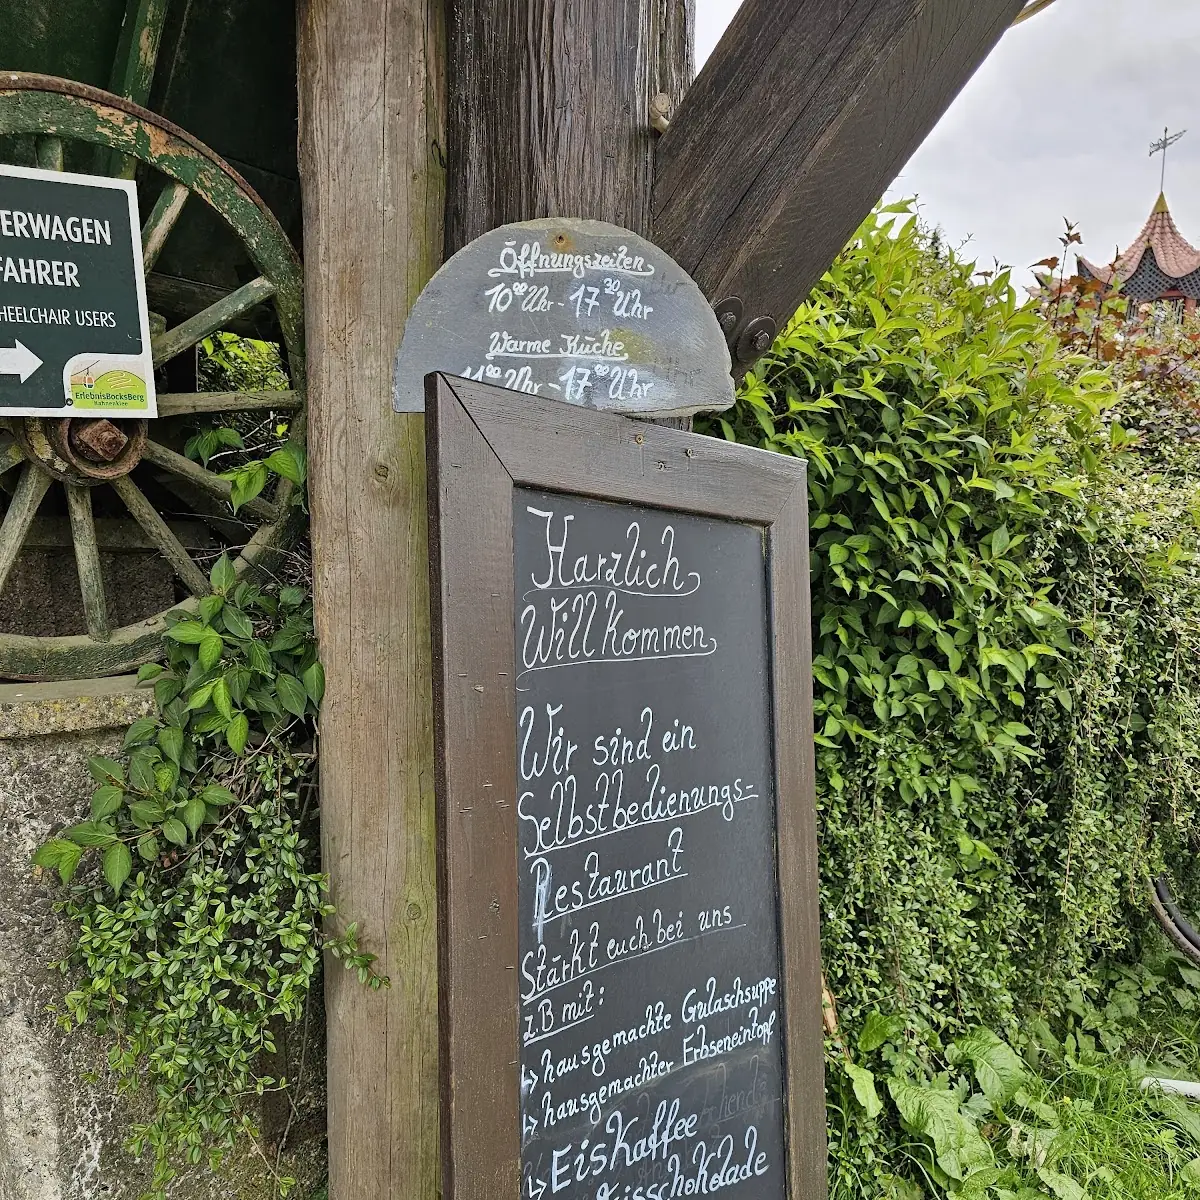 ERWAGEN
FAHRER
HEELCHAIR USERS
ErlebnisBocksBerg
Hahnenklee
Öffnungszeiten
10⁰⁰ Uhr - 17³⁰ Uhr
Warme Küche
11⁰⁰ Uhr - 17⁰⁰ Uhr
Harzlich
Willkommen
Wir sind ein
Selbstbedienungs-
Restaurant
Stärkt euch bei uns
z.B mit:
↳ hausgemachte Gulaschsuppe
↳ hausgemachter Erbseneintopf
↳ Eiskaffee
Eisschokolade